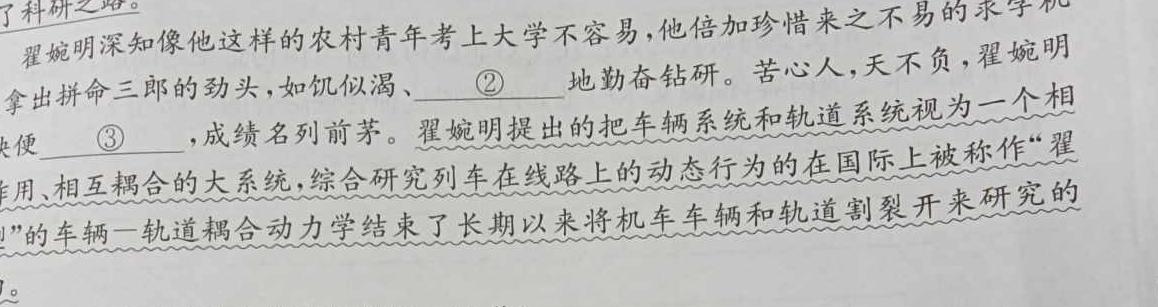 了科研之路。
翟婉明深知像他这样的农村青年考上大学不容易,他倍加珍惜来之不易的求学机
拿出拼命三郎的劲头,如饥似渴、②地勤奋钻研。苦心人,天不负,翟婉明
快便③,成绩名列前茅。翟婉明提出的把车辆系统和轨道系统视为一个相
作用、相互耦合的大系统,综合研究列车在线路上的动态行为的在国际上被称作“翟
”的车辆—轨道耦合动力学结束了长期以来将机车车辆和轨道割裂开来研究的
。